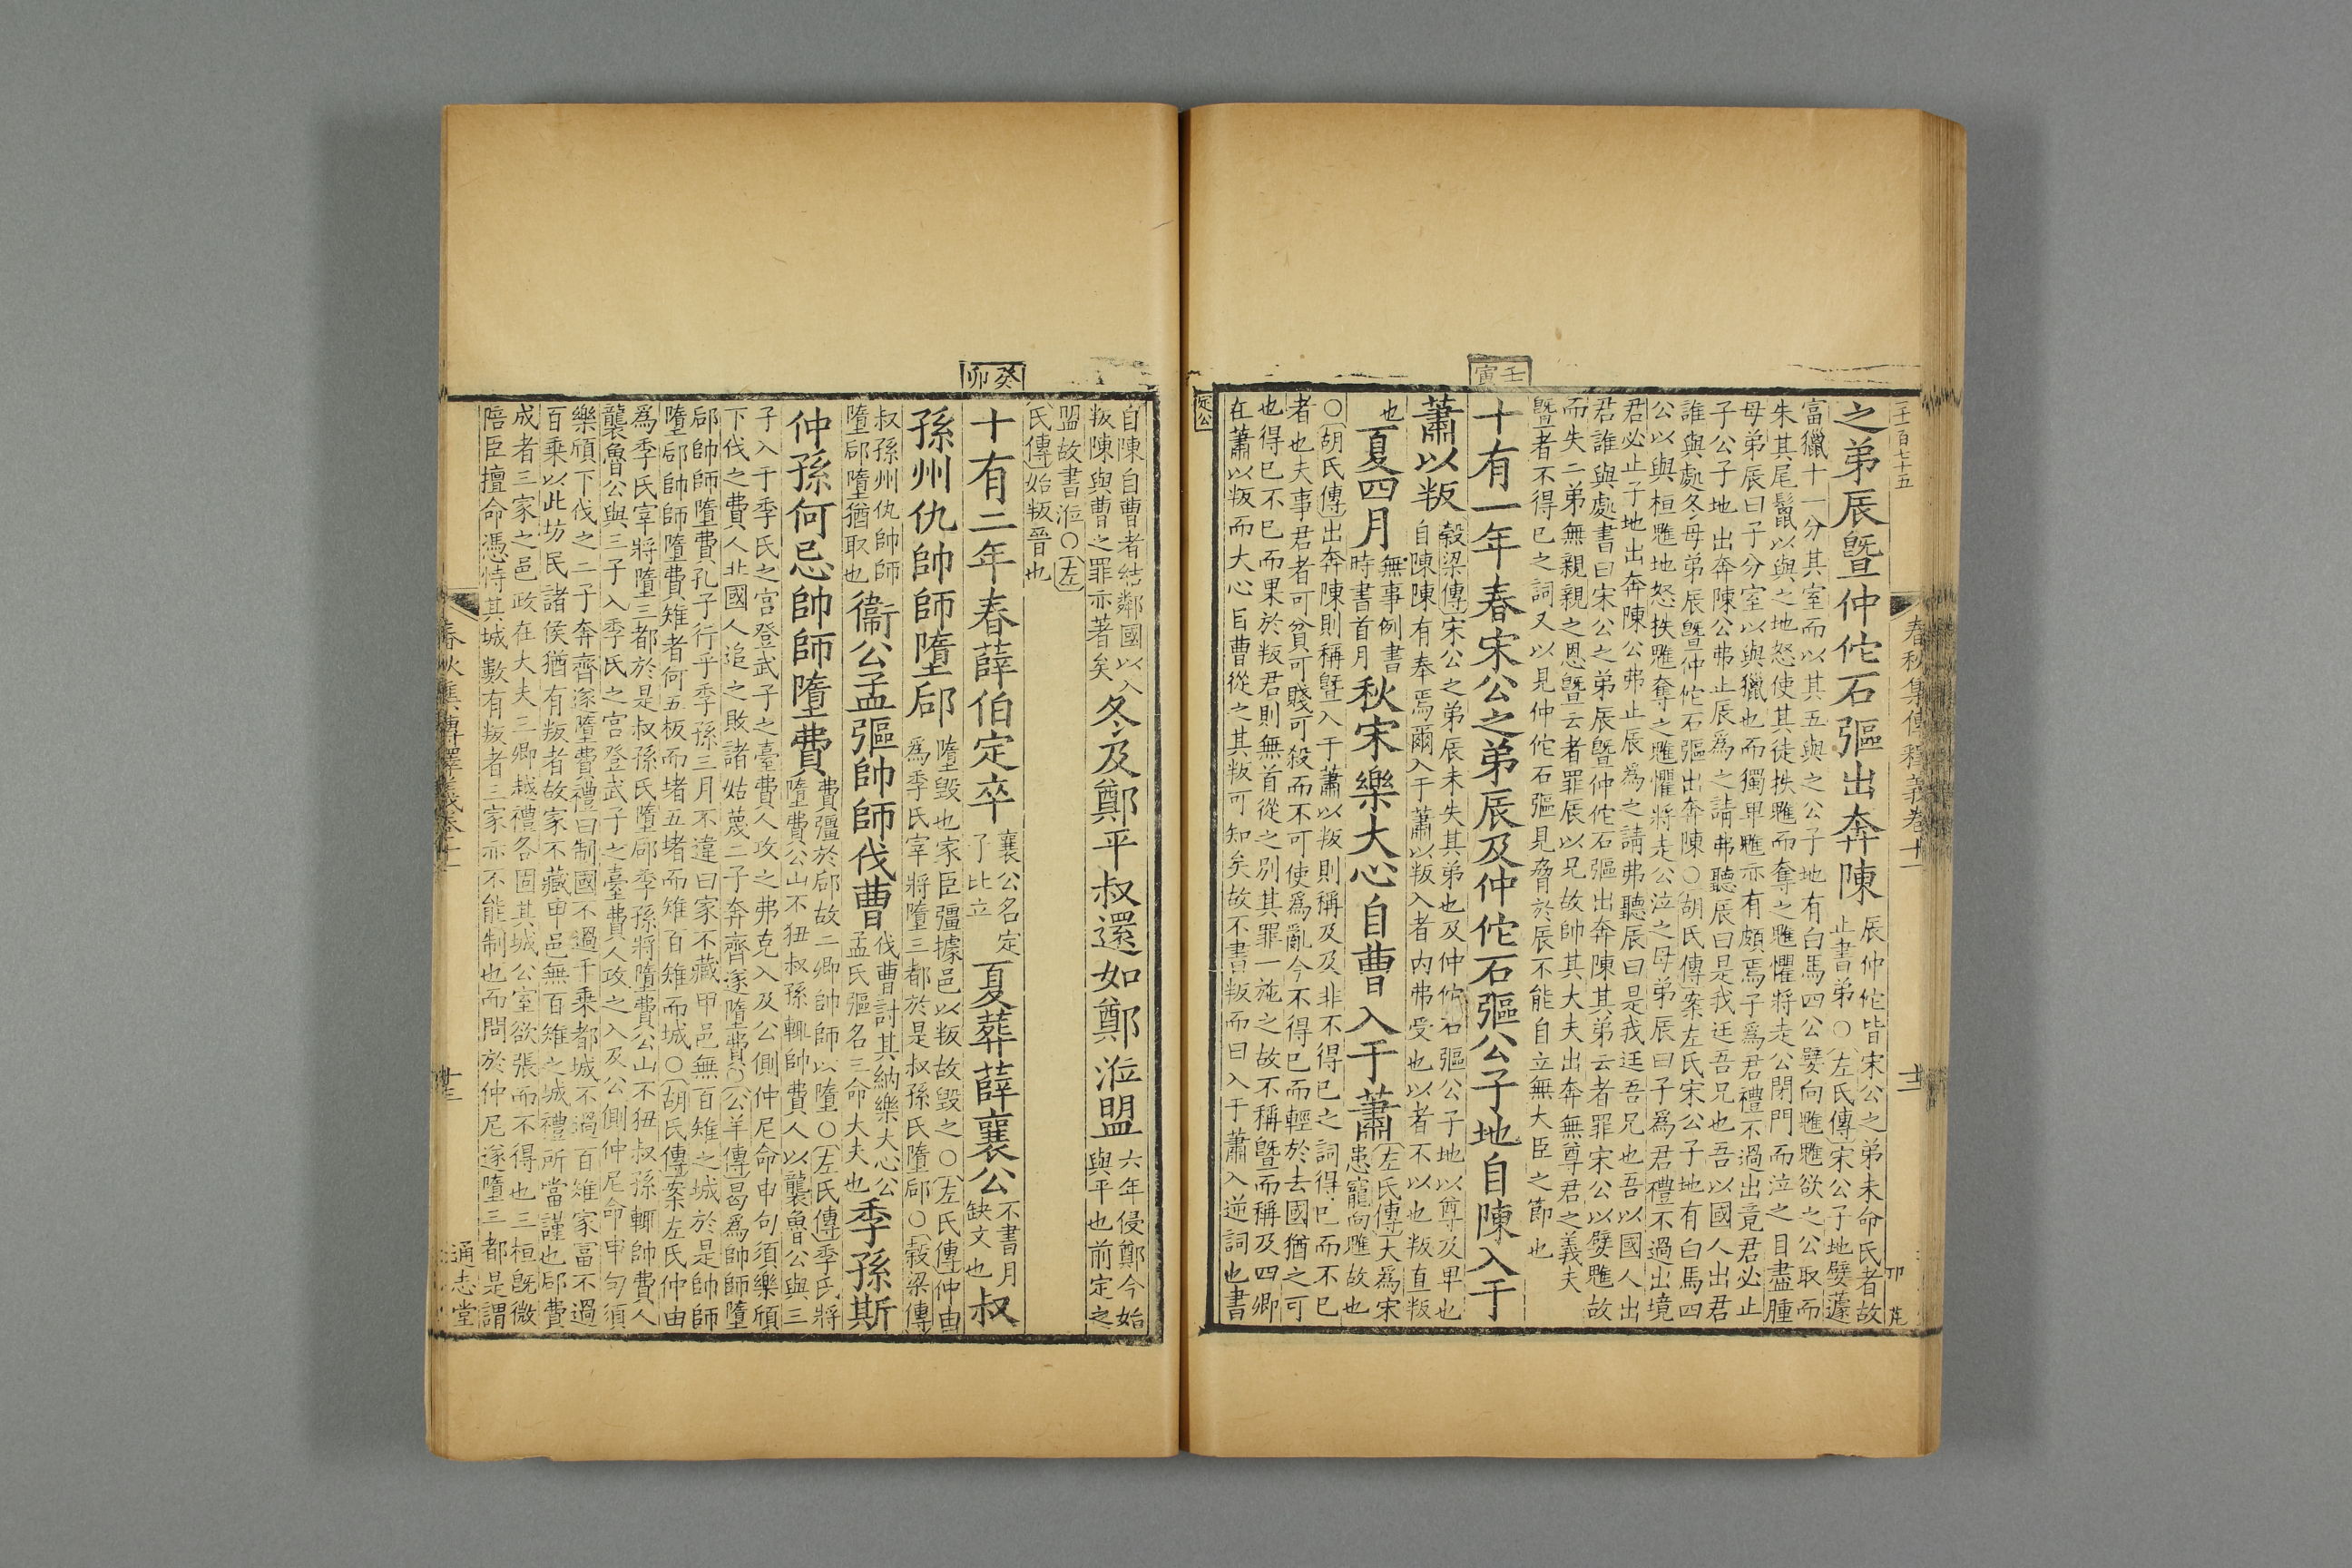 二千百七十五
春秋集傳釋義卷十一
之弟辰曁仲佗石彄出奔陳
辰仲佗皆宋公之弟未命氏者故
止書弟○左氏傳宋公子地嬖蘧
富獵十一分其室而以其五與之公子地有白馬四公嬖向魋魋欲之公取而
朱其尾鬛以與之地怒使其徒抶魋而奪之魋懼將走公閉門而泣之目盡腫
母弟辰曰子分室以與獵也而獨卑魋亦有頗焉子爲君禮不過出竟君必止
子公子地出奔陳公弗止辰爲之請弗聽辰曰是我迋吾兄也吾以國人出君
誰與處冬母弟辰曁仲佗石彄出奔陳○胡氏傳案左氏宋公子地有白馬四
公以與桓魋地怒抶魋奪之魋懼將走公泣之母弟辰曰子爲君禮不過出境
君必止子地出奔陳公弗止辰爲之請弗聽辰曰是我迋吾兄也吾以國人出
君誰與處書曰宋公之弟辰曁仲佗石彄出奔陳其弟云者罪宋公以嬖魋故
而失二弟無親親之恩曁云者罪辰以兄故帥其大夫出奔無尊君之義夫
曁者不得已之詞又以見仲佗石彄見脅於辰不能自立無大臣之節也
壬寅
十有一年春宋公之弟辰及仲佗石彄公子地自陳入于
蕭以叛
穀梁傳宋公之弟辰未失其弟也及仲佗石彄公子地以尊及卑也
自陳陳有奉焉爾入于蕭以叛入者内弗受也以者不以也叛直叛
也
夏四月
無事例書
時書首月
秋宋樂大心自曹入于蕭
左氏傳大爲宋
患寵向魋故也
○胡氏傳出奔陳則稱曁入于蕭以叛則稱及及非不得已之詞得已而不已
者也夫事君者可貧可賤可殺而不可使爲亂今不得已而輕於去國猶之可
也得已不已而果於叛君則無首從之別其罪一施之故不稱曁而稱及四卿
在蕭以叛而大心自曹從之其叛可知矣故不書叛而曰入于蕭入逆詞也書
定公
自陳自曹者結鄰國以入
叛陳與曹之罪亦著矣
冬及鄭平叔還如鄭涖盟
六年侵鄭今始
與平也前定之
盟故書涖○左
氏傳始叛晉也
癸卯
十有二年春薛伯定卒
襄公名定
子比立
夏葬薛襄公
不書月
缺文也
叔
孫州仇帥師墮郈
墮毀也家臣彊據邑以叛故毀之○左氏傳仲由
爲季氏宰將墮三都於是叔孫氏墮郈○穀梁傳
叔孫州仇帥師
墮郈墮猶取也
衞公孟彄帥師伐曹
伐曹討其納樂大心公
孟氏彄名三命大夫也
季孫斯
仲孫何忌帥師墮費
費彊於郈故二卿帥師以墮○左氏傳季氏將
墮費公山不狃叔孫輒帥費人以襲魯公與三
子入于季氏之宫登武子之臺費人攻之弗克入及公側仲尼命申句須樂頎
下伐之費人北國人追之敗諸姑蔑二子奔齊遂墮費○公羊傳曷爲帥師墮
郈帥師墮費孔子行乎季孫三月不違曰家不藏甲邑無百雉之城於是帥師
墮郈帥師墮費雉者何五板而堵五堵而雉百雉而城○胡氏傳案左氏仲由
爲季氏宰將墮三都於是叔孫氏墮郈季孫將墮費公山不狃叔孫輒帥費人
襲魯公與三子入季氏之宫登武子之臺費人攻之入及公側仲尼命申句須
樂頎下伐之二子奔齊遂墮費禮曰制國不過千乘都城不過百雉家富不過
百乘以此坊民諸侯猶有叛者故家不藏甲邑無百雉之城禮所當謹也郈費
成者三家之邑政在大夫三卿越禮各固其城公室欲張而不得也三桓旣微
陪臣擅命憑恃其城數有叛者三家亦不能制也而問於仲尼遂墮三都是謂
春秋集傳釋義卷十一
通志堂